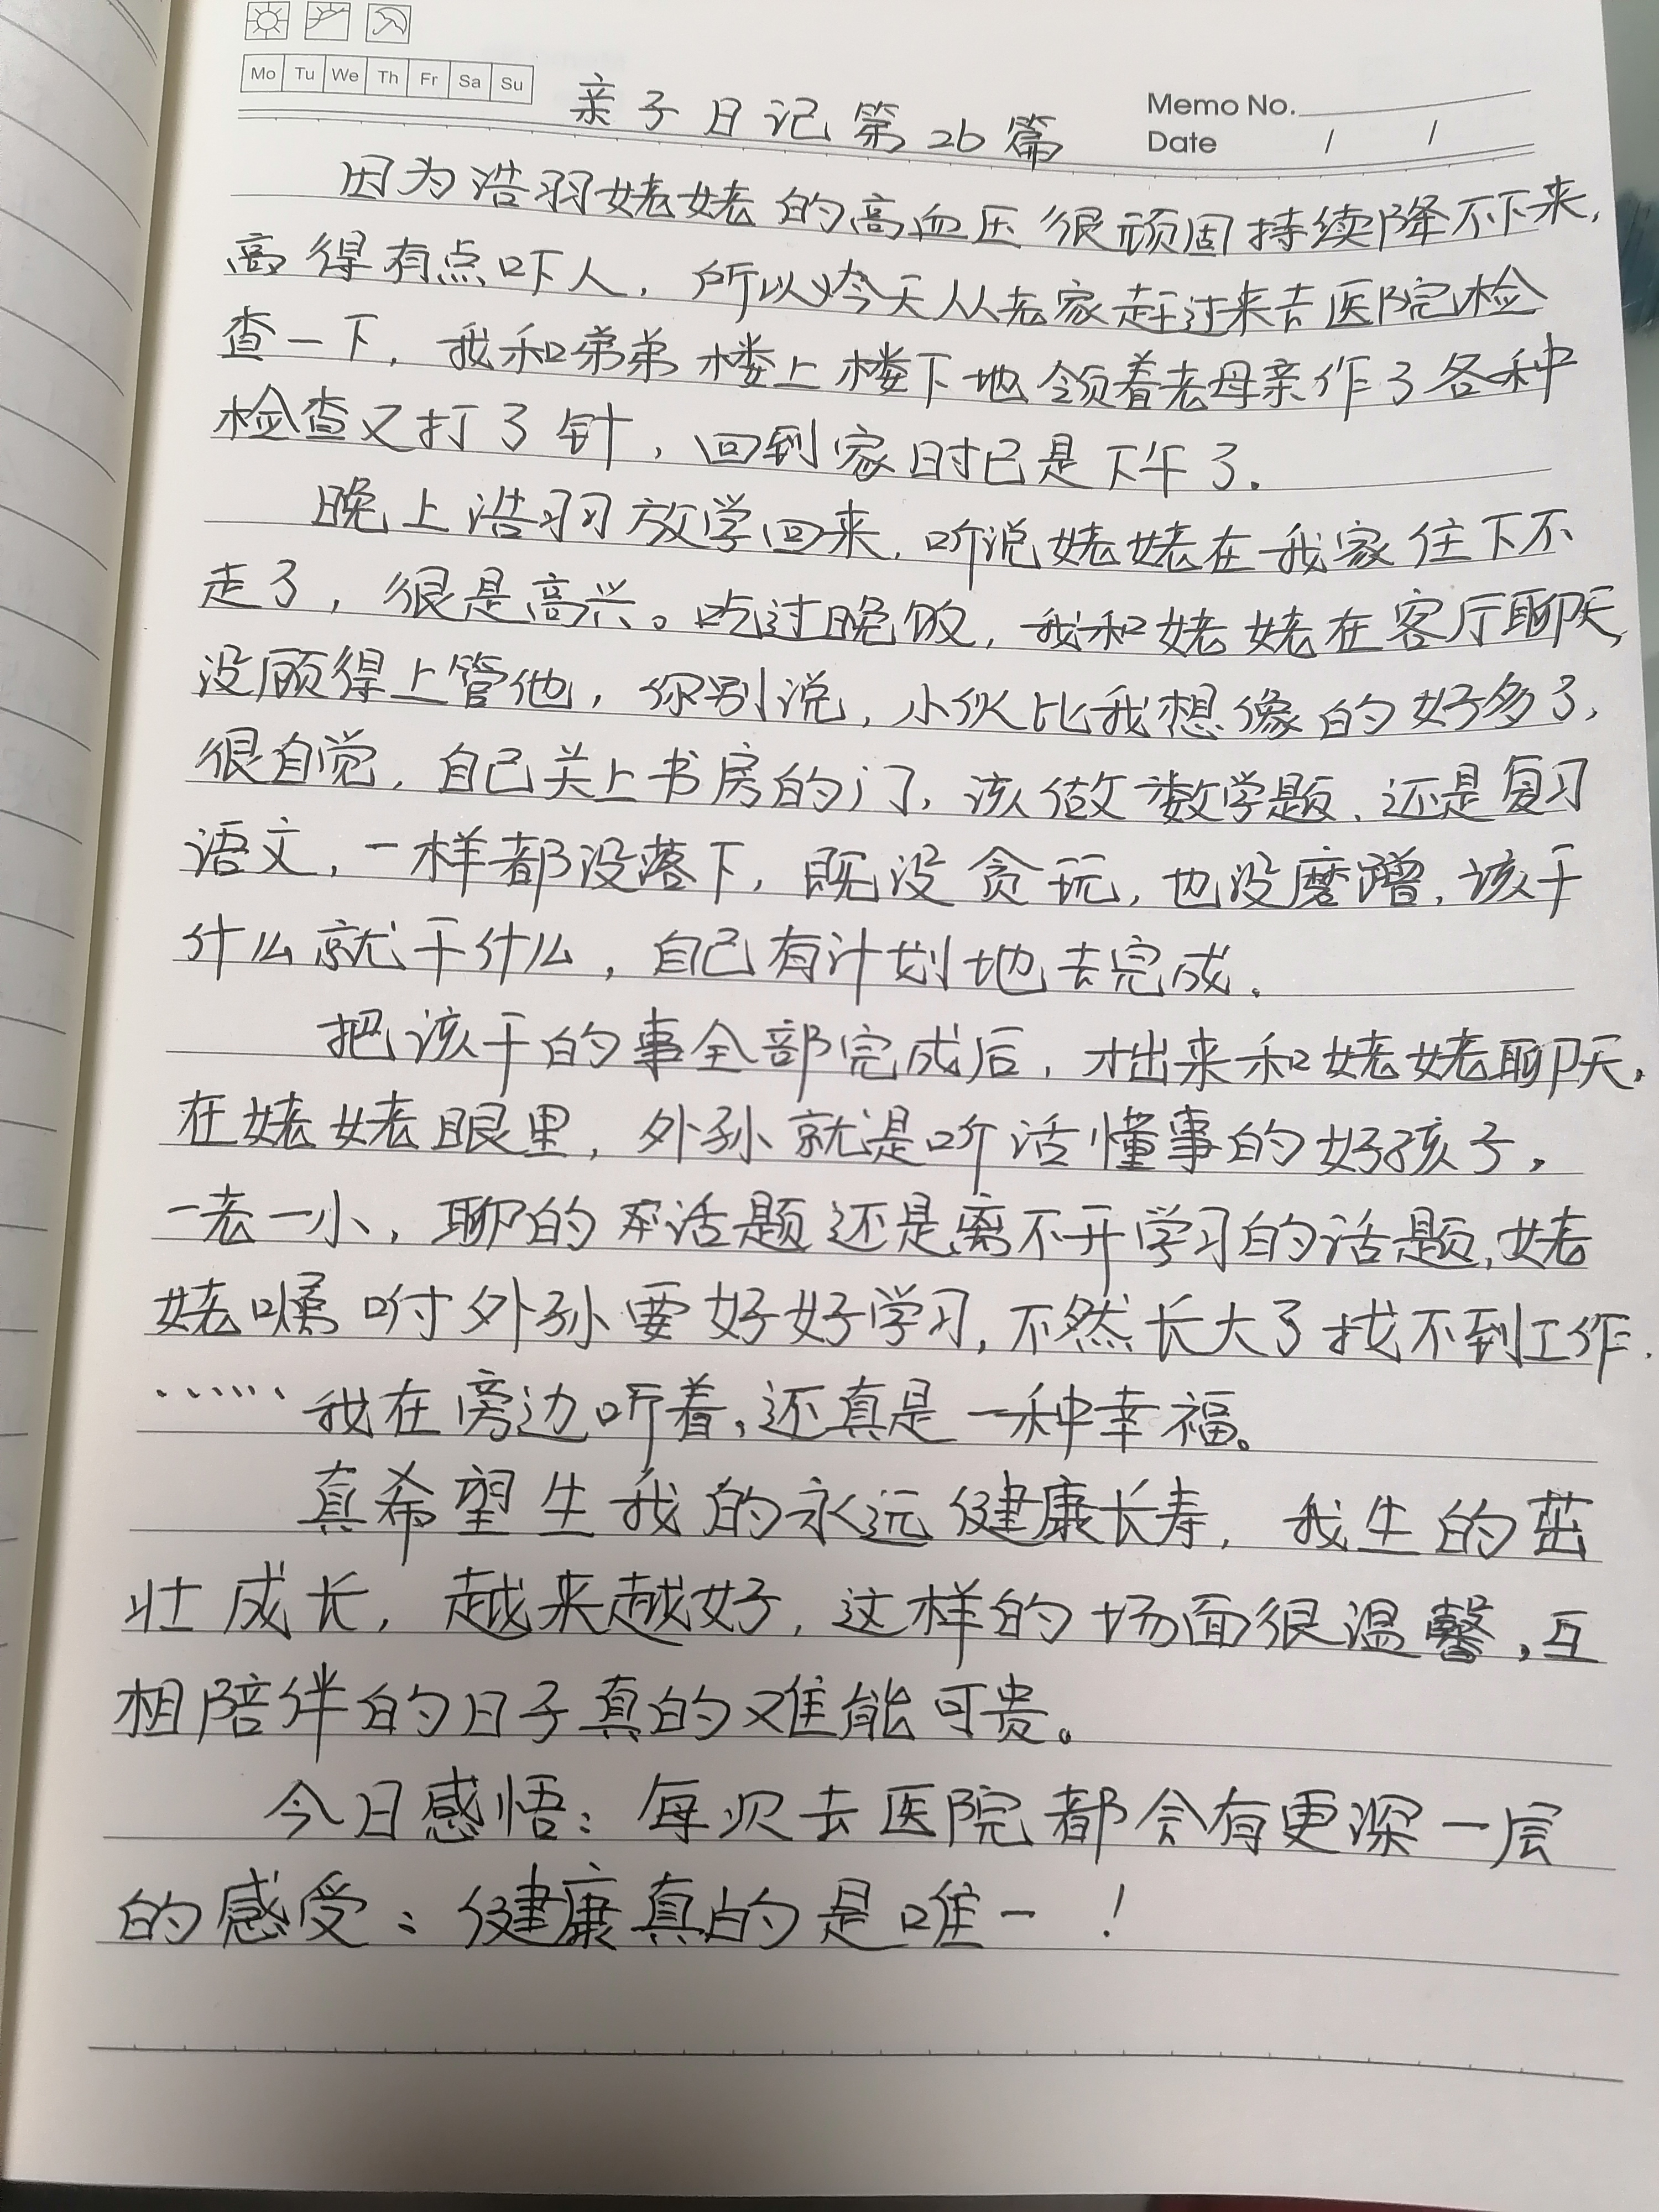 Mo Tu We Th Fr Sa Su
亲子日记第26篇
Memo No.
Date / /
因为浩羽姥姥的高血压很顽固持续降不下来,
高得有点吓人，所以今天从老家赶过来去医院检
查一下，我和弟弟楼上楼下地领着老母亲作了各种
检查又打了针，回到家时已是下午了.
晚上浩羽放学回来，听说姥姥在我家住下不
走了，很是高兴。吃过晚饭，我和姥姥在客厅聊天,
没顾得上管他，你别说，小伙比我想像的好多了,
很自觉，自己关上书房的门，该做数学题、还是复习
语文，一样都没落下，既没贪玩，也没磨蹭，该干
什么就干什么，自己有计划地去完成.
把该干的事全部完成后，才出来和姥姥聊天,
在姥姥眼里，外孙就是听话懂事的好孩子,
一老一小，聊的话题还是离不开学习的话题,姥
姥嘱咐外孙要好好学习,不然长大了找不到工作.
……我在旁边听着,还真是一种幸福。
真希望生我的永远健康长寿，我生的茁
壮成长，越来越好，这样的场面很温馨,互
相陪伴的日子真的难能可贵。
今日感悟：每次去医院都会有更深一层
的感受：健康真的是唯一！